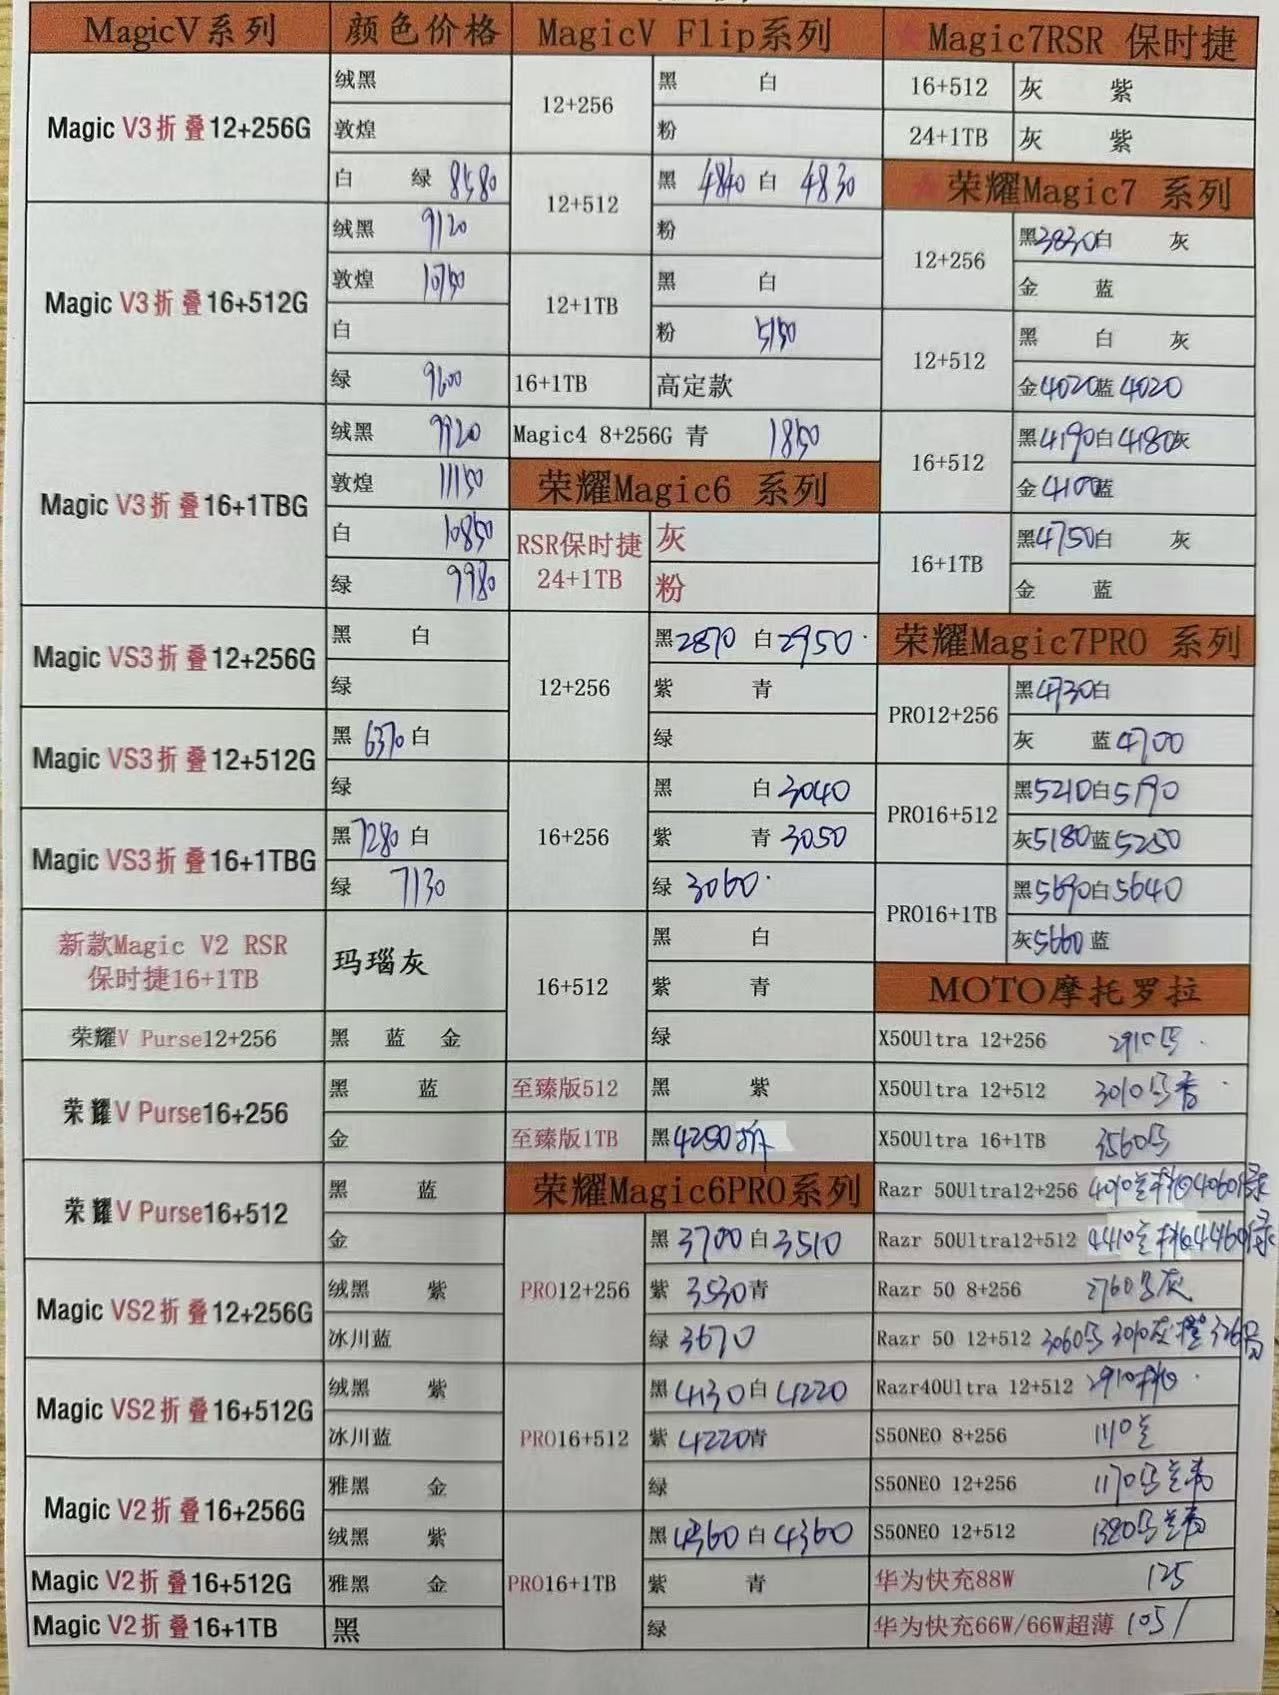 MagicV系列 颜色价格
Magic V3折叠12+256G
绒黑
敦煌
白 绿 8580
Magic V3折叠16+512G
绒黑 9120
敦煌 10750
白
绿 9600
Magic V3折叠16+1TBG
绒黑 9920
敦煌 11150
白 10850
绿 9980
Magic VS3折叠12+256G
黑 白
绿
Magic VS3折叠12+512G
黑 6370 白
绿
Magic VS3折叠16+1TBG
黑 7280 白
绿 7130
新款Magic V2 RSR
保时捷16+1TB
玛瑙灰
荣耀V Purse12+256 黑 蓝 金
荣耀V Purse16+256
黑 蓝
金
荣耀V Purse16+512
黑 蓝
金
Magic VS2折叠12+256G
绒黑 紫
冰川蓝
Magic VS2折叠16+512G
绒黑 紫
冰川蓝
Magic V2折叠16+256G
雅黑 金
绒黑 紫
Magic V2折叠16+512G 雅黑 金
Magic V2折叠16+1TB 黑
MagicV Flip系列
12+256
黑 白
粉
12+512
黑 4840 白 4830
粉
12+1TB
黑 白
粉 5150
16+1TB 高定款
Magic4 8+256G 青 1850
荣耀Magic6 系列
RSR保时捷
24+1TB
灰
粉
12+256
黑2870 白2950
紫 青
绿
16+256
黑 白3040
紫 青3050
绿 3060
16+512
黑 白
紫 青
绿
至臻版512 黑 紫
至臻版1TB 黑4250折
荣耀Magic6PRO系列
PRO12+256
黑 3700 白3510
紫 3530青
绿 3670
PRO16+512
黑 4130白 4220
紫 4220青
绿
PRO16+1TB
黑4360 白4360
紫 青
绿
Magic7RSR 保时捷
16+512 灰 紫
24+1TB 灰 紫
荣耀Magic7 系列
12+256
黑3830白 灰
金 蓝
12+512
黑 白 灰
金4020蓝4020
16+512
黑4190白4180灰
金4100蓝
16+1TB
黑4750白 灰
金 蓝
荣耀Magic7PRO 系列
PRO12+256
黑4730白
灰 蓝4700
PRO16+512
黑5210白5190
灰5180蓝5250
PRO16+1TB
黑5690白5640
灰5660蓝
MOTO摩托罗拉
X50Ultra 12+256 2910
X50Ultra 12+512 3010
X50Ultra 16+1TB 3560
Razr 50Ultra12+256 4010 4060绿
Razr 50Ultra12+512 4410 4460绿
Razr 50 8+256 2760 灰
Razr 50 12+512 3060 3010灰
Razr40Ultra 12+512 2910
S50NEO 8+256 1110
S50NEO 12+256 1170
S50NEO 12+512 1320
华为快充88W 125
华为快充66W/66W超薄 105/